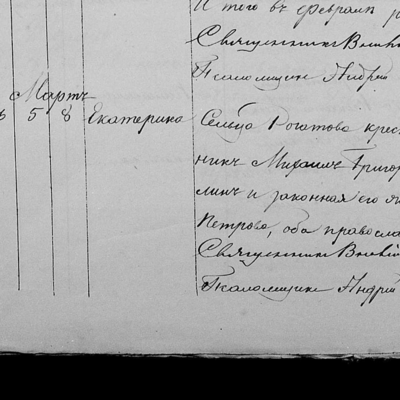 И того въ февралѣ
Священникъ
Псаломщикъ Андрей
Мартъ
5 8 Екатерина Сельца Рогатова крес
никъ Михаилъ Григор
и законная его
Петрова, оба правосла
Священникъ
Псаломщикъ Андрей